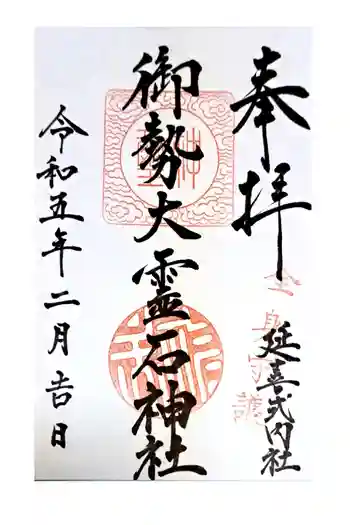 奉拝
全身守護
延喜式内社
御勢大靈石神社
令和五年二月吉日